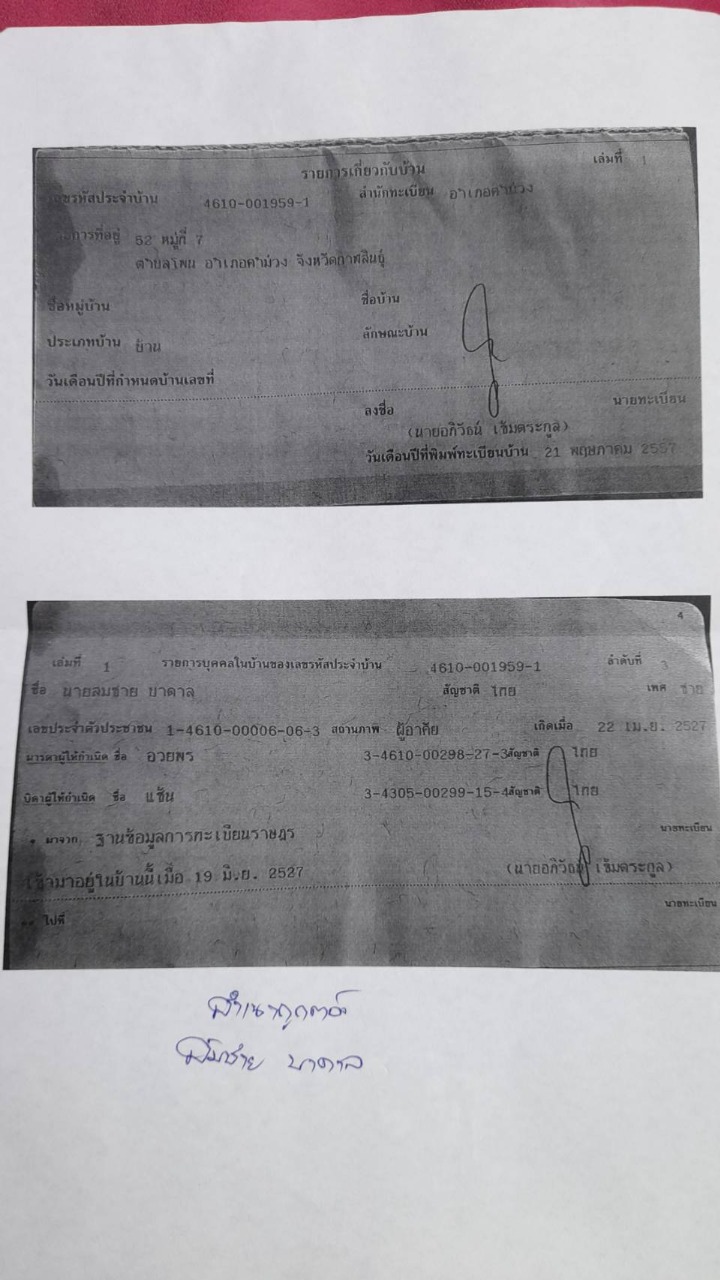 รายการเกี่ยวกับบ้าน เล่มที่ 1
เลขรหัสประจำบ้าน 4610-001959-1 สำนักทะเบียน อำเภอคำม่วง
รายการที่อยู่ 52 หมู่ที่ 7
ตำบลโพน อำเภอคำม่วง จังหวัดกาฬสินธุ์
ชื่อหมู่บ้าน ชื่อบ้าน
ประเภทบ้าน บ้าน ลักษณะบ้าน
วันเดือนปีที่กำหนดบ้านเลขที่
ลงชื่อ นายทะเบียน
(นายอภิวัธน์ เข็มตระกูล)
วันเดือนปีที่พิมพ์ทะเบียนบ้าน 21 พฤษภาคม 2557
4
เล่มที่ 1 รายการบุคคลในบ้านของเลขรหัสประจำบ้าน 4610-001959-1 ลำดับที่ 3
ชื่อ นายสมชาย บาดาล สัญชาติ ไทย เพศ ชาย
เลขประจำตัวประชาชน 1-4610-00006-06-3 สถานภาพ ผู้อาศัย เกิดเมื่อ 22 เม.ย. 2527
มารดาผู้ให้กำเนิด ชื่อ อวยพร 3-4610-00298-27-3 สัญชาติ ไทย
บิดาผู้ให้กำเนิด ชื่อ แช้น 3-4305-00299-15-4 สัญชาติ ไทย
* มาจาก ฐานข้อมูลการทะเบียนราษฎร นายทะเบียน
เข้ามาอยู่ในบ้านนี้เมื่อ 19 มิ.ย. 2527 (นายอภิวัธน์ เข็มตระกูล)
** ไปที่ นายทะเบียน
สำเนาถูกต้อง
สมชาย บาดาล